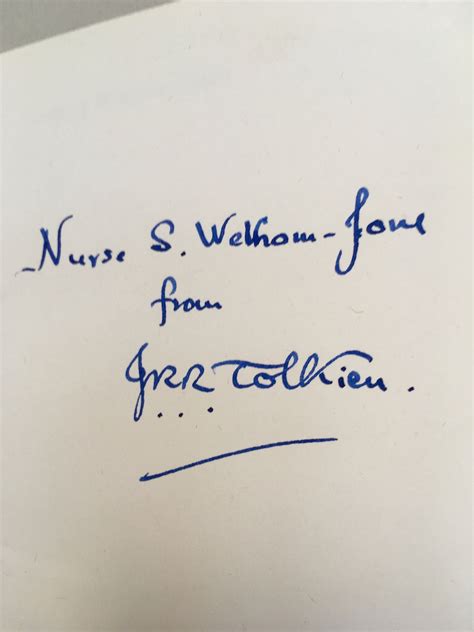 Nurse S. Welhom-Jone
from
JRR Tolkien.